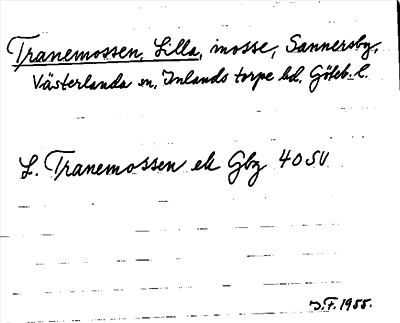 Tranemossen, Lilla, mosse, Sannersby,
Västerlanda sn, Inlands torpe hd, Göteb. l.
L. Tranemossen ek Gbg 40 SV
J.F. 1955.